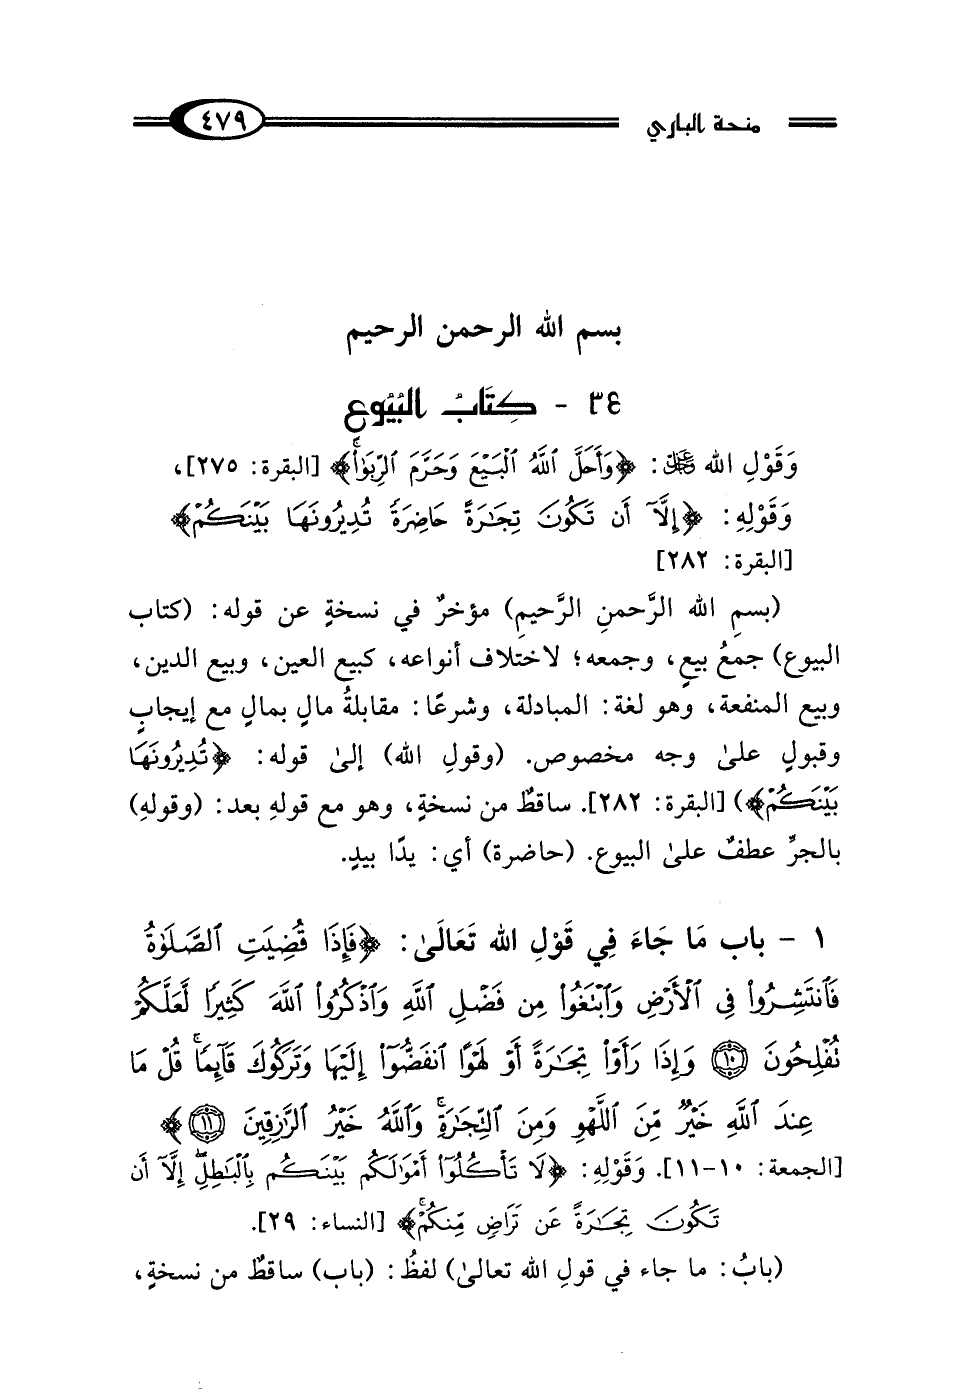 منحة الباري
٤٧٩
بسم الله الرحمن الرحيم
٣٤ - كِتَابُ البُيُوعِ
وَقَوْلِ الله ﷻ: ﴿وَأَحَلَّ ٱللَّهُ ٱلْبَيْعَ وَحَرَّمَ ٱلرِّبَوٰا۟ۚ﴾ [البقرة: ٢٧٥]،
وَقَوْلِهِ: ﴿إِلَّآ أَن تَكُونَ تِجَٰرَةً حَاضِرَةً تُدِيرُونَهَا بَيْنَكُمْ﴾
[البقرة: ٢٨٢]
(بسمِ الله الرَّحمنِ الرَّحيمِ) مؤخرٌ في نسخةٍ عن قوله: (كتاب
البيوع) جمعُ بيعٍ، وجمعه؛ لاختلاف أنواعه، كبيع العين، وبيع الدين،
وبيع المنفعة، وهو لغة: المبادلة، وشرعًا: مقابلةُ مالٍ بمالٍ مع إيجابٍ
وقبولٍ علىٰ وجه مخصوص. (وقولِ الله) إلىٰ قوله: ﴿تُدِيرُونَهَا
بَيْنَكُمْ﴾) [البقرة: ٢٨٢]. ساقطٌ من نسخةٍ، وهو مع قولهِ بعد: (وقولهِ)
بالجرِّ عطفٌ علىٰ البيوع. (حاضرة) أي: يدًا بيدٍ.
١ - باب مَا جَاءَ فِي قَوْلِ الله تَعَالَىٰ: ﴿فَإِذَا قُضِيَتِ ٱلصَّلَوٰةُ
فَٱنتَشِرُوا۟ فِى ٱلْأَرْضِ وَٱبْتَغُوا۟ مِن فَضْلِ ٱللَّهِ وَٱذْكُرُوا۟ ٱللَّهَ كَثِيرًا لَّعَلَّكُمْ
تُفْلِحُونَ ١٠ وَإِذَا رَأَوْا۟ تِجَٰرَةً أَوْ لَهْوًا ٱنفَضُّوٓا۟ إِلَيْهَا وَتَرَكُوكَ قَآئِمًاۚ قُلْ مَا
عِندَ ٱللَّهِ خَيْرٌ مِّنَ ٱللَّهْوِ وَمِنَ ٱلتِّجَٰرَةِۚ وَٱللَّهُ خَيْرُ ٱلرَّٰزِقِينَ ١١﴾
[الجمعة: ١٠-١١]. وَقَوْلِهِ: ﴿لَا تَأْكُلُوٓا۟ أَمْوَٰلَكُم بَيْنَكُم بِٱلْبَٰطِلِ إِلَّآ أَن
تَكُونَ تِجَٰرَةً عَن تَرَاضٍ مِّنكُمْۚ﴾ [النساء: ٢٩].
(بابُ: ما جاء في قولِ الله تعالىٰ) لفظُ: (باب) ساقطٌ من نسخةٍ،